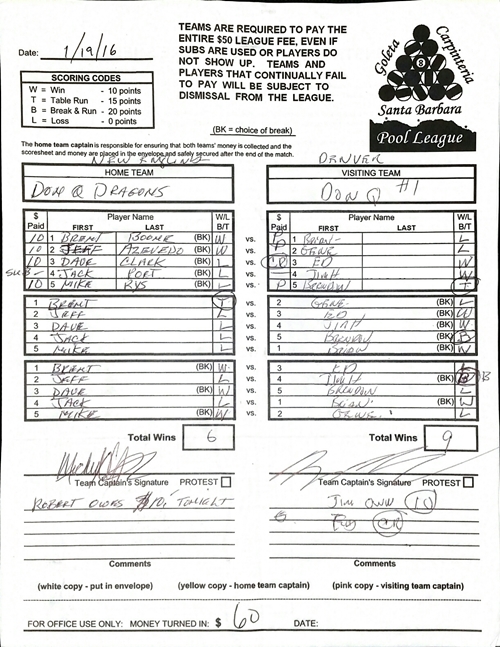 Date: 1/19/16
TEAMS ARE REQUIRED TO PAY THE
ENTIRE $50 LEAGUE FEE, EVEN IF
SUBS ARE USED OR PLAYERS DO
NOT SHOW UP. TEAMS AND
PLAYERS THAT CONTINUALLY FAIL
TO PAY WILL BE SUBJECT TO
DISMISSAL FROM THE LEAGUE.
Goleta
Carpinteria
8
Santa Barbara
Pool League
SCORING CODES
W = Win - 10 points
T = Table Run - 15 points
B = Break & Run - 20 points
L = Loss - 0 points
(BK = choice of break)
The home team captain is responsible for ensuring that both teams' money is collected and the
scoresheet and money are placed in the envelope and safely secured after the end of the match.
NEW ENGLAND DENVER
HOME TEAM VISITING TEAM
DON Q DRAGONS DON Q #1
$ Paid Player Name FIRST LAST W/L B/T
$ Paid Player Name FIRST LAST W/L B/T
10 1 BRENT BOONE (BK) W vs. 1 BRIAN L
10 2 JEFF AZEVEDO (BK) W vs. 2 GENE L
10 3 DAVE CLACK (BK) L vs. CR 3 ED W
SUB - 4 JACK PORT L vs. 4 JIM H W
10 5 MIKE RYS L vs. P 5 BRENDAN T
1 BRENT T vs. 2 GENE L
2 JEFF L vs. 3 ED (BK) W
3 DAVE L vs. 4 JIM H (BK) W
4 JACK L vs. 5 BRENDAN (BK) B
5 MIKE L vs. 1 BRIAN (BK) W
1 BRENT (BK) W vs. 3 ED L
2 JEFF L vs. 4 JIM H (BK) B B
3 DAVE (BK) W vs. 5 BRENDAN L
4 JACK L vs. 1 BRIAN (BK) W
5 MIKE (BK) W vs. 2 GENE L
Total Wins 6 Total Wins 9
Team Captain's Signature PROTEST Team Captain's Signature PROTEST
ROBERT OWES $10 TONIGHT JIM OWW 10
CR
Comments Comments
(white copy - put in envelope) (yellow copy - home team captain) (pink copy - visiting team captain)
FOR OFFICE USE ONLY: MONEY TURNED IN: $ 60 DATE: